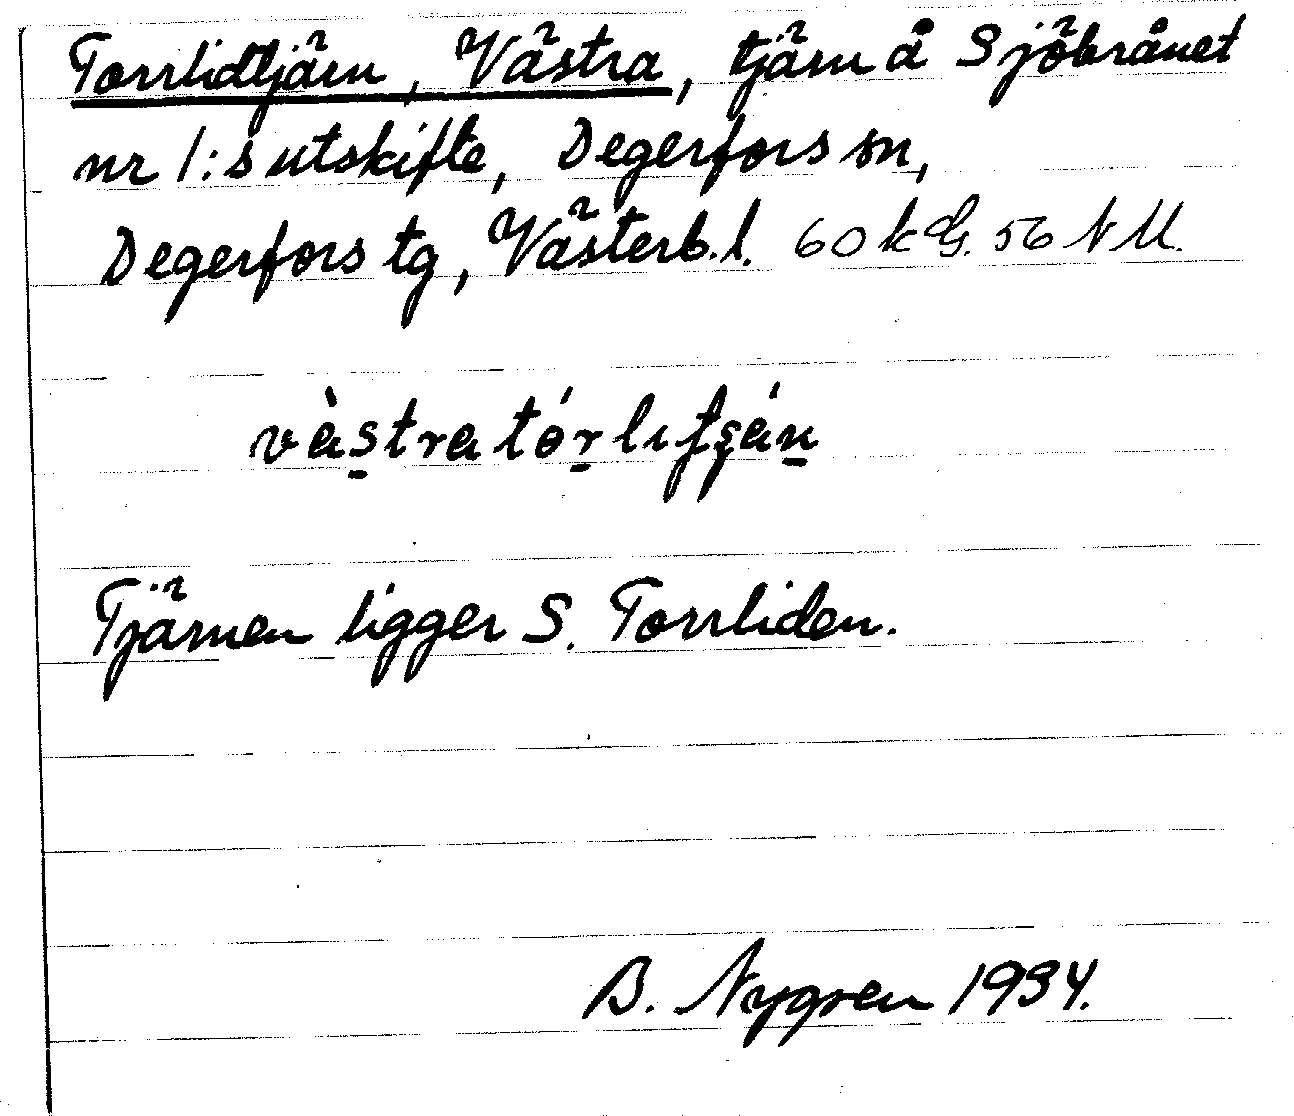 Torrlidtjärn, Västra, tjärn å Sjöbrånet
nr 1:s utskifte, Degerfors sn,
Degerfors tg, Västerb.l. 60 k G. 56 N M.
vàstra tórlıtʃán
Tjärnen ligger S. Torrliden.
B. Nygren 1934.